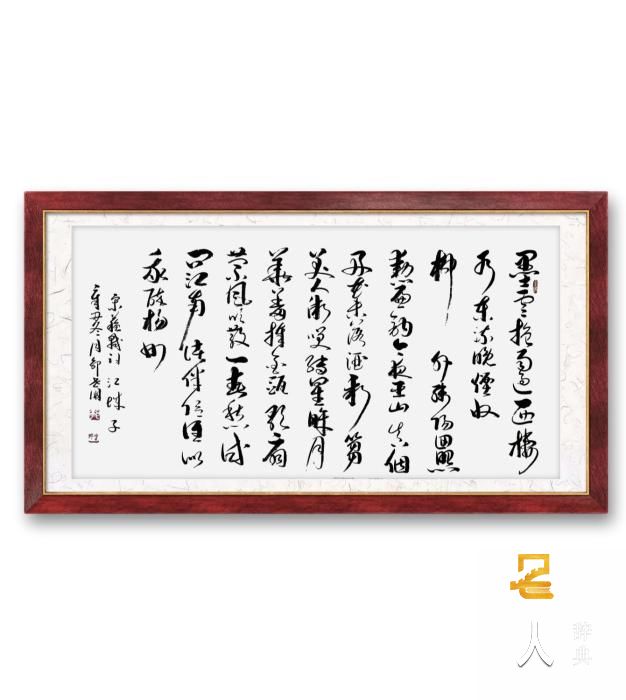 墨云拖雨过西楼
水东流晚烟收
柳外残阳回照
动帘钩今夜巫山真个
好花未落酒新篘
美人微笑转星眸月
花羞捧金瓯歌扇
萦风吹散一春愁试
问江南诸伴侣谁似
我醉扬州
宋苏轼词江城子
辛丑冬月
名人
辞典